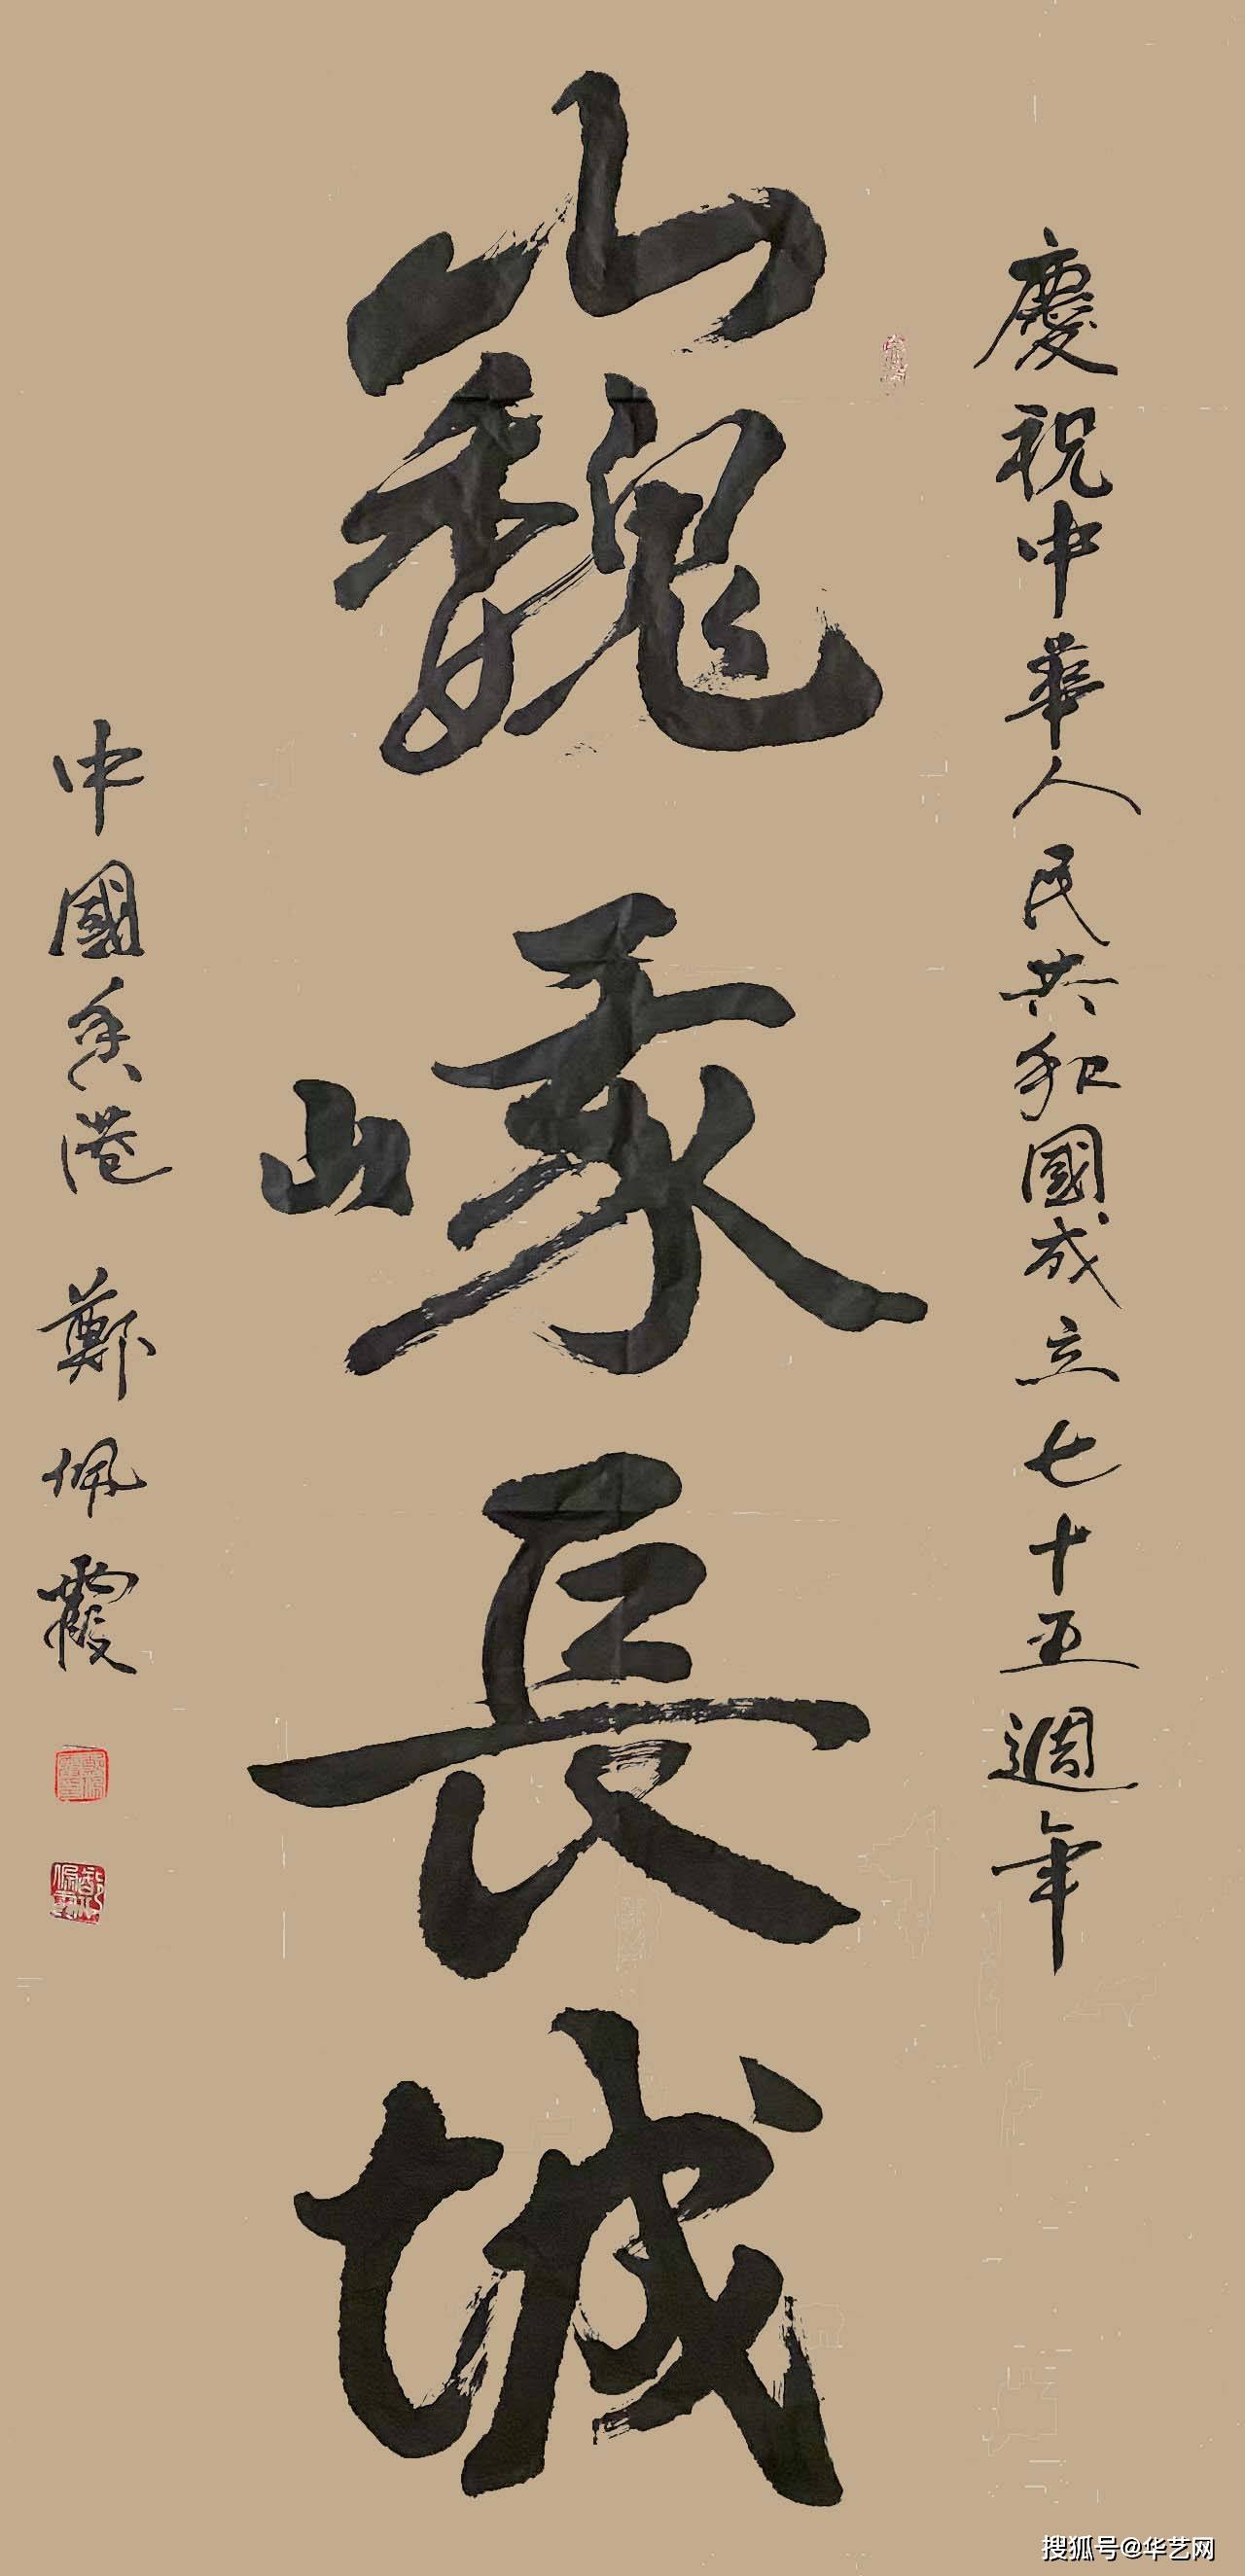 慶祝中華人民共和國成立七十五週年
巍峨長城
中國香港 鄭佩霞
搜狐号@华艺网